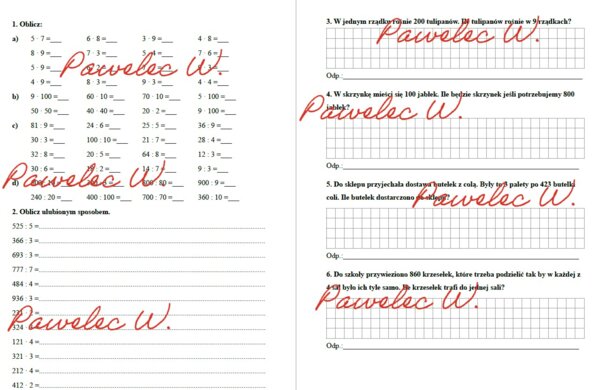 1. Oblicz:
a) 5 · 7 =___ 6 · 8 =___ 3 · 9 =___ 4 · 8 =___
8 · 9 =___ 7 · 3 =___ 5 · 4 =___ 7 · 6 =___
5 · 9 =___ 3 =___
4 · 9 =___ 8 · 3 =___ 9 · 3 =___ 4 · 3 =___
Pawelec W.
b) 9 · 100 =___ 60 · 10 =___ 70 · 10 =___ 5 · 100 =___
50 · 50 =___ 40 · 40 =___ 20 · 2 =___ 9 · 100 =___
c) 81 : 9 =___ 24 : 6 =___ 25 : 5 =___ 36 : 9 =___
30 : 3 =___ 100 : 10 =___ 21 : 7 =___ 28 : 4 =___
32 : 8 =___ 20 : 5 =___ 64 : 8 =___ 12 : 3 =___
30 : 6 =___ : 2 =___ 14 : 7 =___ 9 : 3 =___
Pawelec W.
d) : 80 =___ 900 : 9 =___
240 : 20 =___ 400 : 100 =___ 700 : 70 =___ 360 : 10 =___
2. Oblicz ulubionym sposobem.
525 : 5 =
366 : 3 =
693 : 3 =
777 : 7 =
484 : 4 =
936 : 3 =
Pawelec W.
121 · 4 =
321 · 3 =
212 · 4 =
412 · 2 =
3. W jednym rządku rośnie 200 tulipanów. Ile tulipanów rośnie w 9 rządkach?
Pawelec W.
Odp.:
4. W skrzynkę mieści się 100 jabłek. Ile będzie skrzynek jeśli potrzebujemy 800
jabłek?
Pawelec W.
Odp.:
5. Do sklepu przyjechała dostawa butelek z colą. Były to 3 palety po 423 butelki
coli. Ile butelek dostarczono do sklepu?
Pawelec W.
Odp.:
6. Do szkoły przywieziono 860 krzesełek, które trzeba podzielić tak by w każdej z
4 sal było ich tyle samo. Ile krzesełek trafi do jednej sali?
Pawelec W.
Odp.: